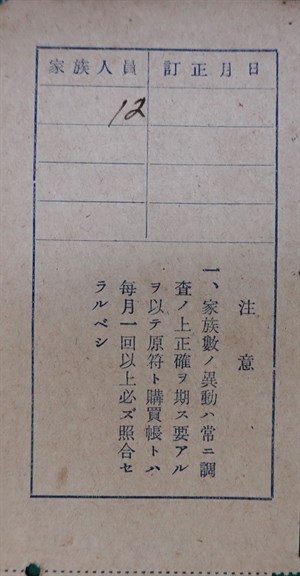 家族人員 訂正月日
12
注意
一、家族數ノ異動ハ常ニ調
査ノ上正確ヲ期ス要アル
ヲ以テ原符ト購買帳トハ
每月一回以上必ズ照合セ
ラルベシ